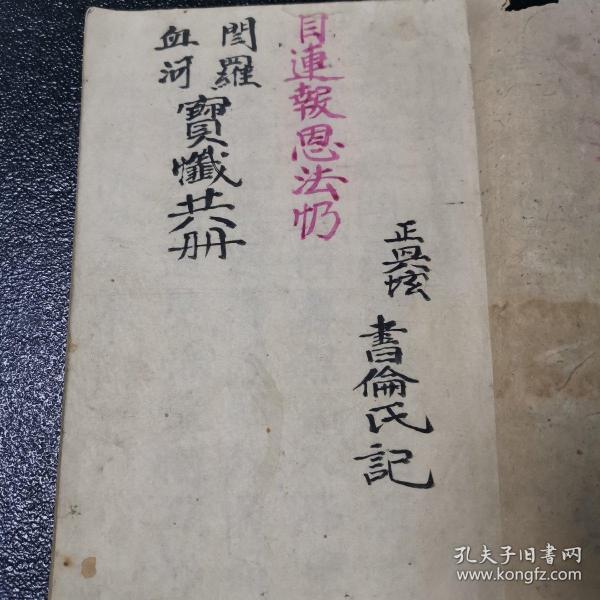 書倫氏記
目連報恩法
閆羅
血河
寶懺共册
孔夫子旧书网
www.kongfz.com